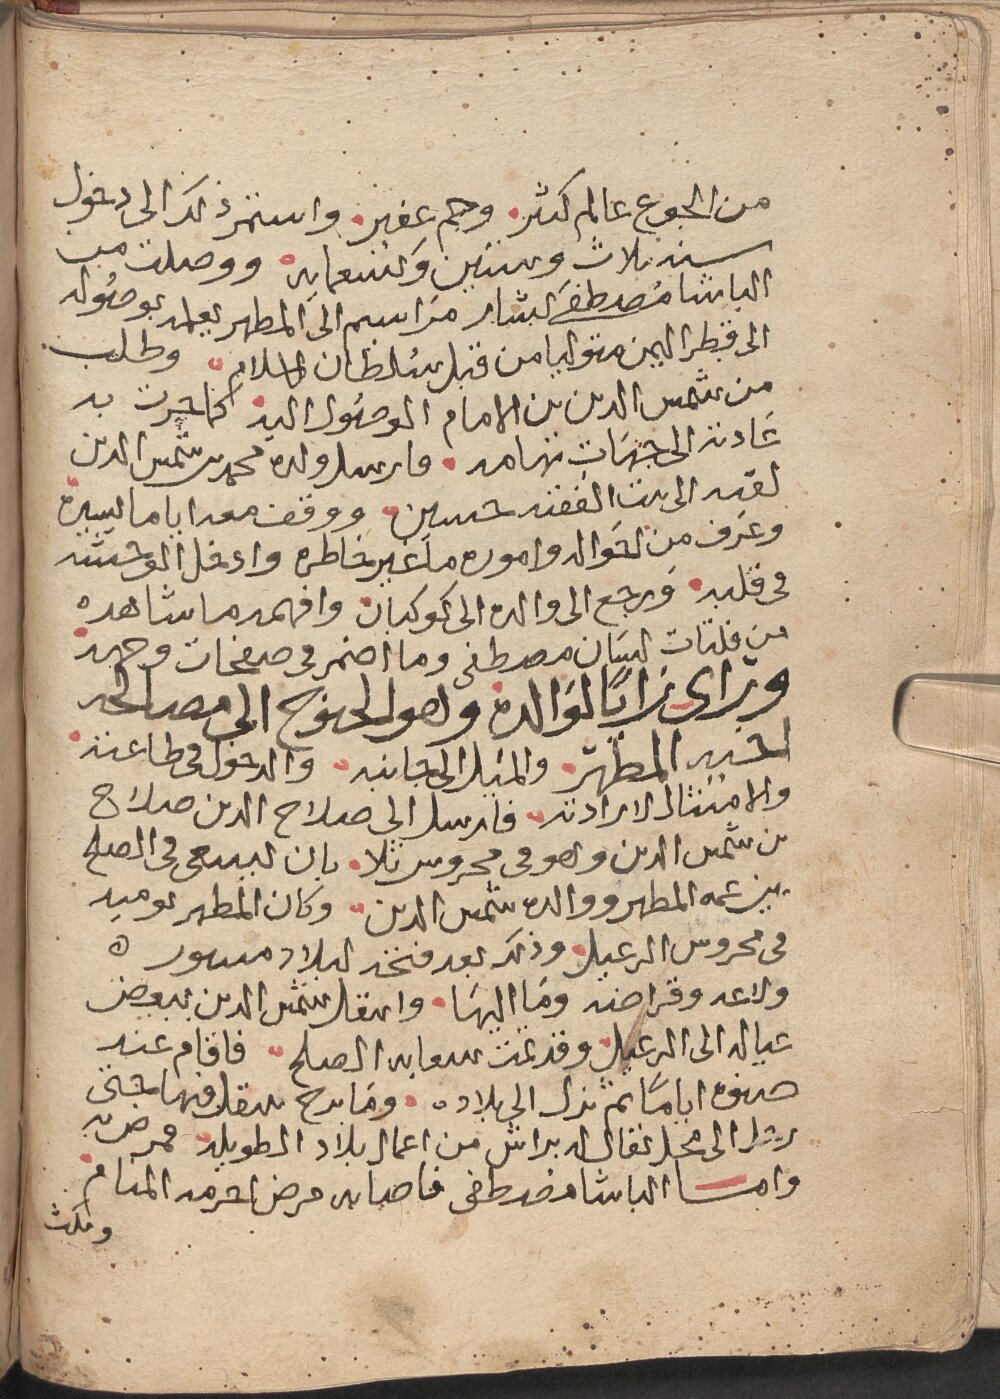 من الجوع عالم كثير. وجم غفير. واستمر ذلك الى دخول
سنه ثلاث وستين وتسعمايه. ووصلت من
الباشا مصطفى النشار مراسيم الى المطهر يعلمه بوصوله
الى قطر اليمن متوليا من قبل سلطان الاسلام. وطلب
من شمس الدين بن الامام الوصول اليه. كما جرت به
عادته الى جهات تهامه. فارسل ولده محمد بن شمس الدين
لقيه الى بيت الفقيه حسين. ووقف معه اياما يسيرة
وعرف من احواله واموره ما غير خاطره وادخل الوحشه
في قلبه. ورجع الى والده الى كوكبان وافهمه ما شاهده
من فلتات لسان مصطفى وما اضمر في صفحات وجهه
وتراى رايا لوالده. وهو الجنوح الى مصالحه
اخيه المطهر. والميل الى جانبه. والدخول في طاعته
والامتثال لارادته. فارسل الى صلاح الدين صلاح
بن شمس الدين وهو في محروس ثلا. بان يسعى في الصلح
بين عمه المطهر ووالده شمس الدين. وكان المطهر يوميذ
في محروس الرعيل. وذلك بعد فتحه لبلاد مسور ه
ولاعه وقراضه وما اليها. وانتقل شمس الدين ببعض
عياله الى الرعيل. وقد تمت سعايه الصلح. فاقام عند
صنوه اياما ثم نزل الى بلاده. وما برح يتنقل فيها حتى
نزل الى محل يقال له براش من اعمال بلاد الطويله. فمرض به
وامـا الباشا مصطفى فاصابه مرض احرمه المنام.
ومكث